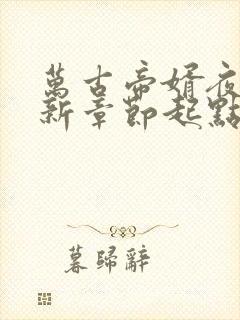 萬古帝婿夜
新章節起點
暮歸辭